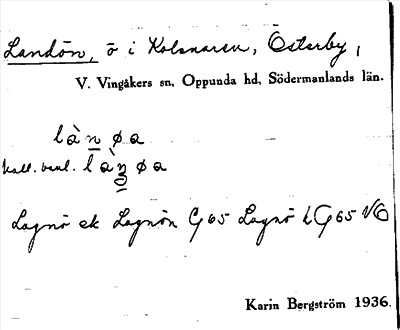 Landön, ö i Kolsnaren, Österby,
V. Vingåkers sn, Oppunda hd, Södermanlands län.
làn̲øa
kall. vanl. làn̲øa
Lagnö ek Lagnön G65 Lagnö LG65 VÖ
Karin Bergström 1936.